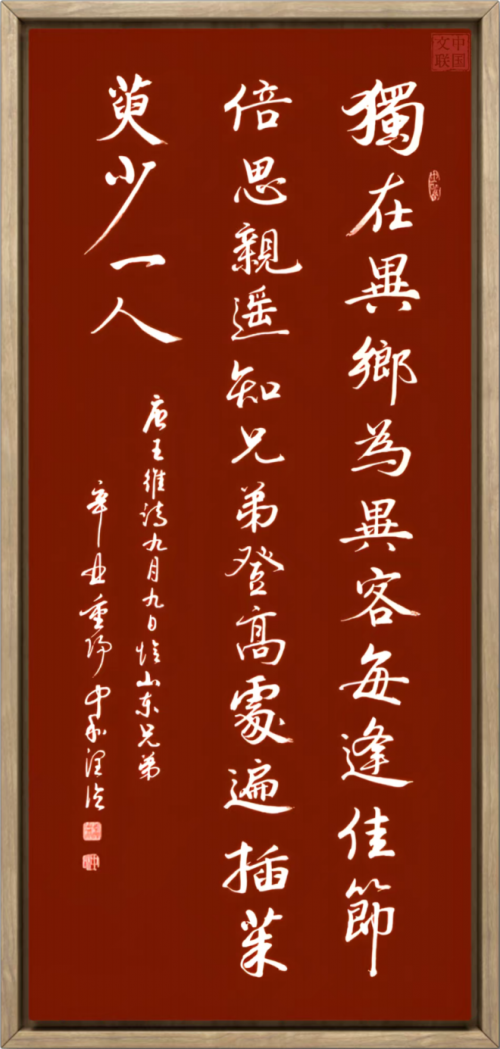 獨在異鄉為異客每逢佳節
倍思親遥知兄弟登高處遍插茱
萸少一人
唐王維詩九月九日憶山东兄弟
辛丑重陽中和润京
中国文联